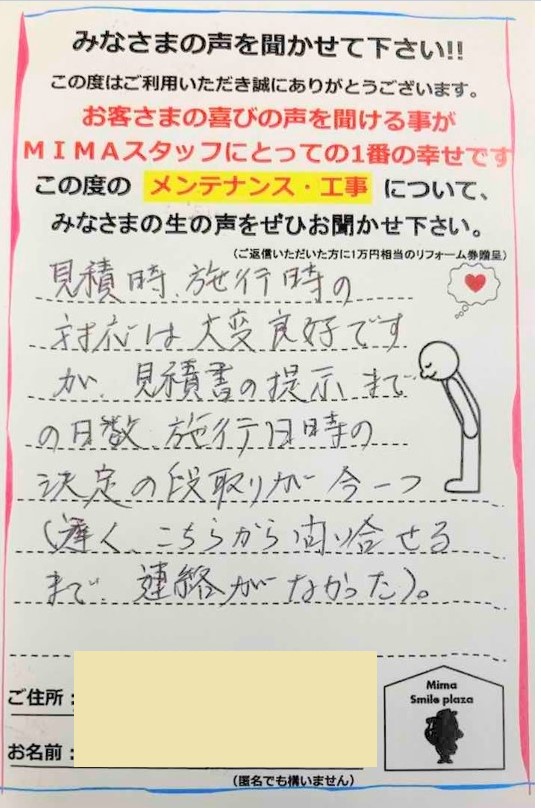 みなさまの声を聞かせて下さい!!
この度はご利用いただき誠にありがとうございます。
お客さまの喜びの声を聞ける事が
MIMAスタッフにとっての1番の幸せです
この度の メンテナンス・工事 について、
みなさまの生の声をぜひお聞かせ下さい。
(ご返信いただいた方に1万円相当のリフォーム券贈呈)
見積時、施行時の
対応は大変良好です
が、見積書の提示まで
の日数、施行日時の
決定の段取りが今一つ
(遅く、こちらから問い合せる
まで、連絡がなかった)。
ご住所:
お名前:
(匿名でも構いません)
Mima
Smile plaza